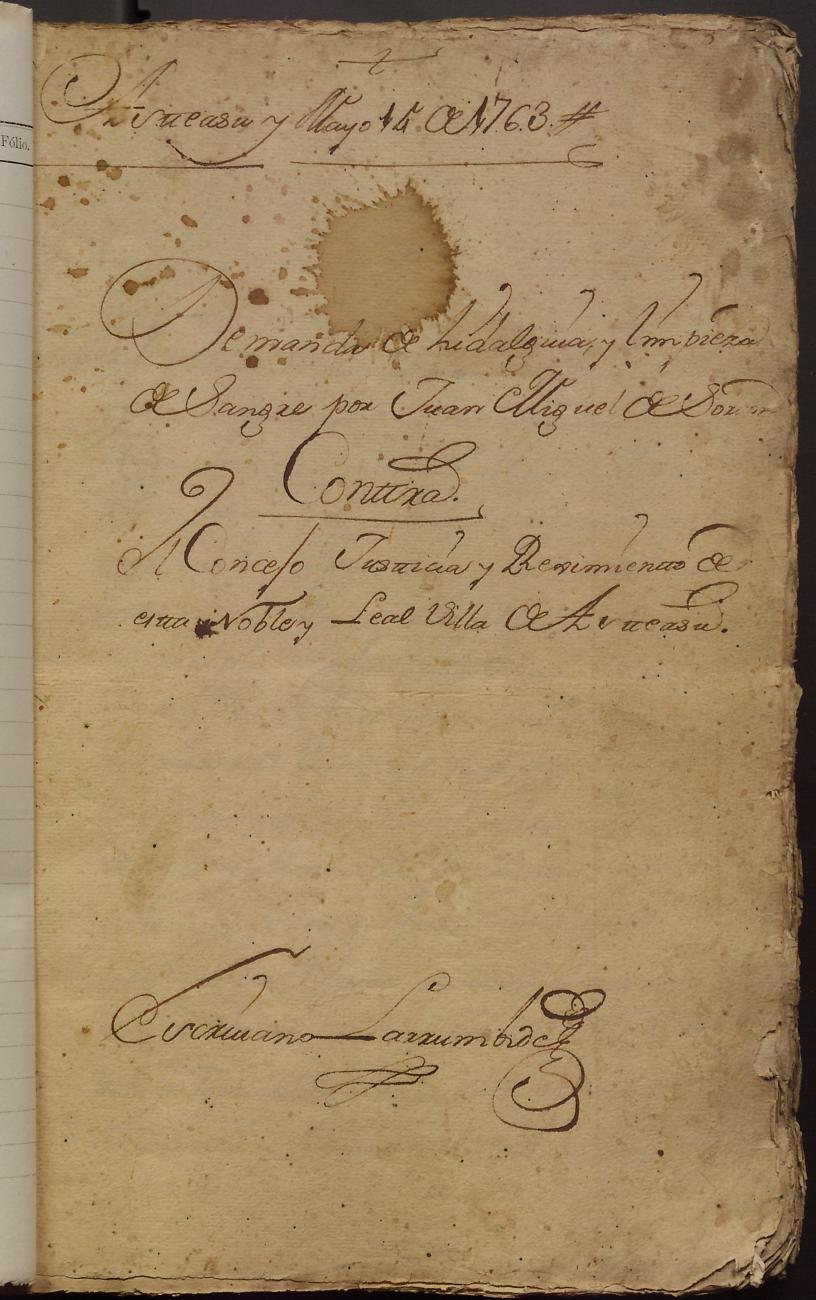 Fólio.
+
Asteasu y Mayo 15 de 1763 #
Demanda de hidalguia, y limpieza
de Sangre por Juan Miguel de
Contra.
El Concejo Justicia y Reximiento de
esta Noble y Leal Villa de Asteasu.
Escriuano Larrumbide